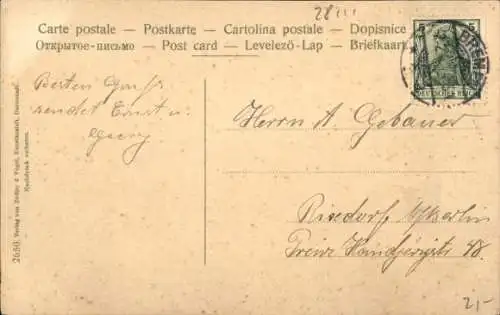 28
Carte postale — Postkarte — Cartolina postale — Dopisnice
Открытое-письмо — Post card — Levelező-Lap — Briefkaart
5 5
DEUTSCHES REICH
BREMEN
Besten Gruß
sendet Ernst u.
Georg
Herrn A. Gebauer
Rixdorf b/Berlin
Prinz Handjerystr 48.
2650. Verlag von Zedler & Vogel, Kunstanstalt, Darmstadt.
Nachdruck verboten.
2,-